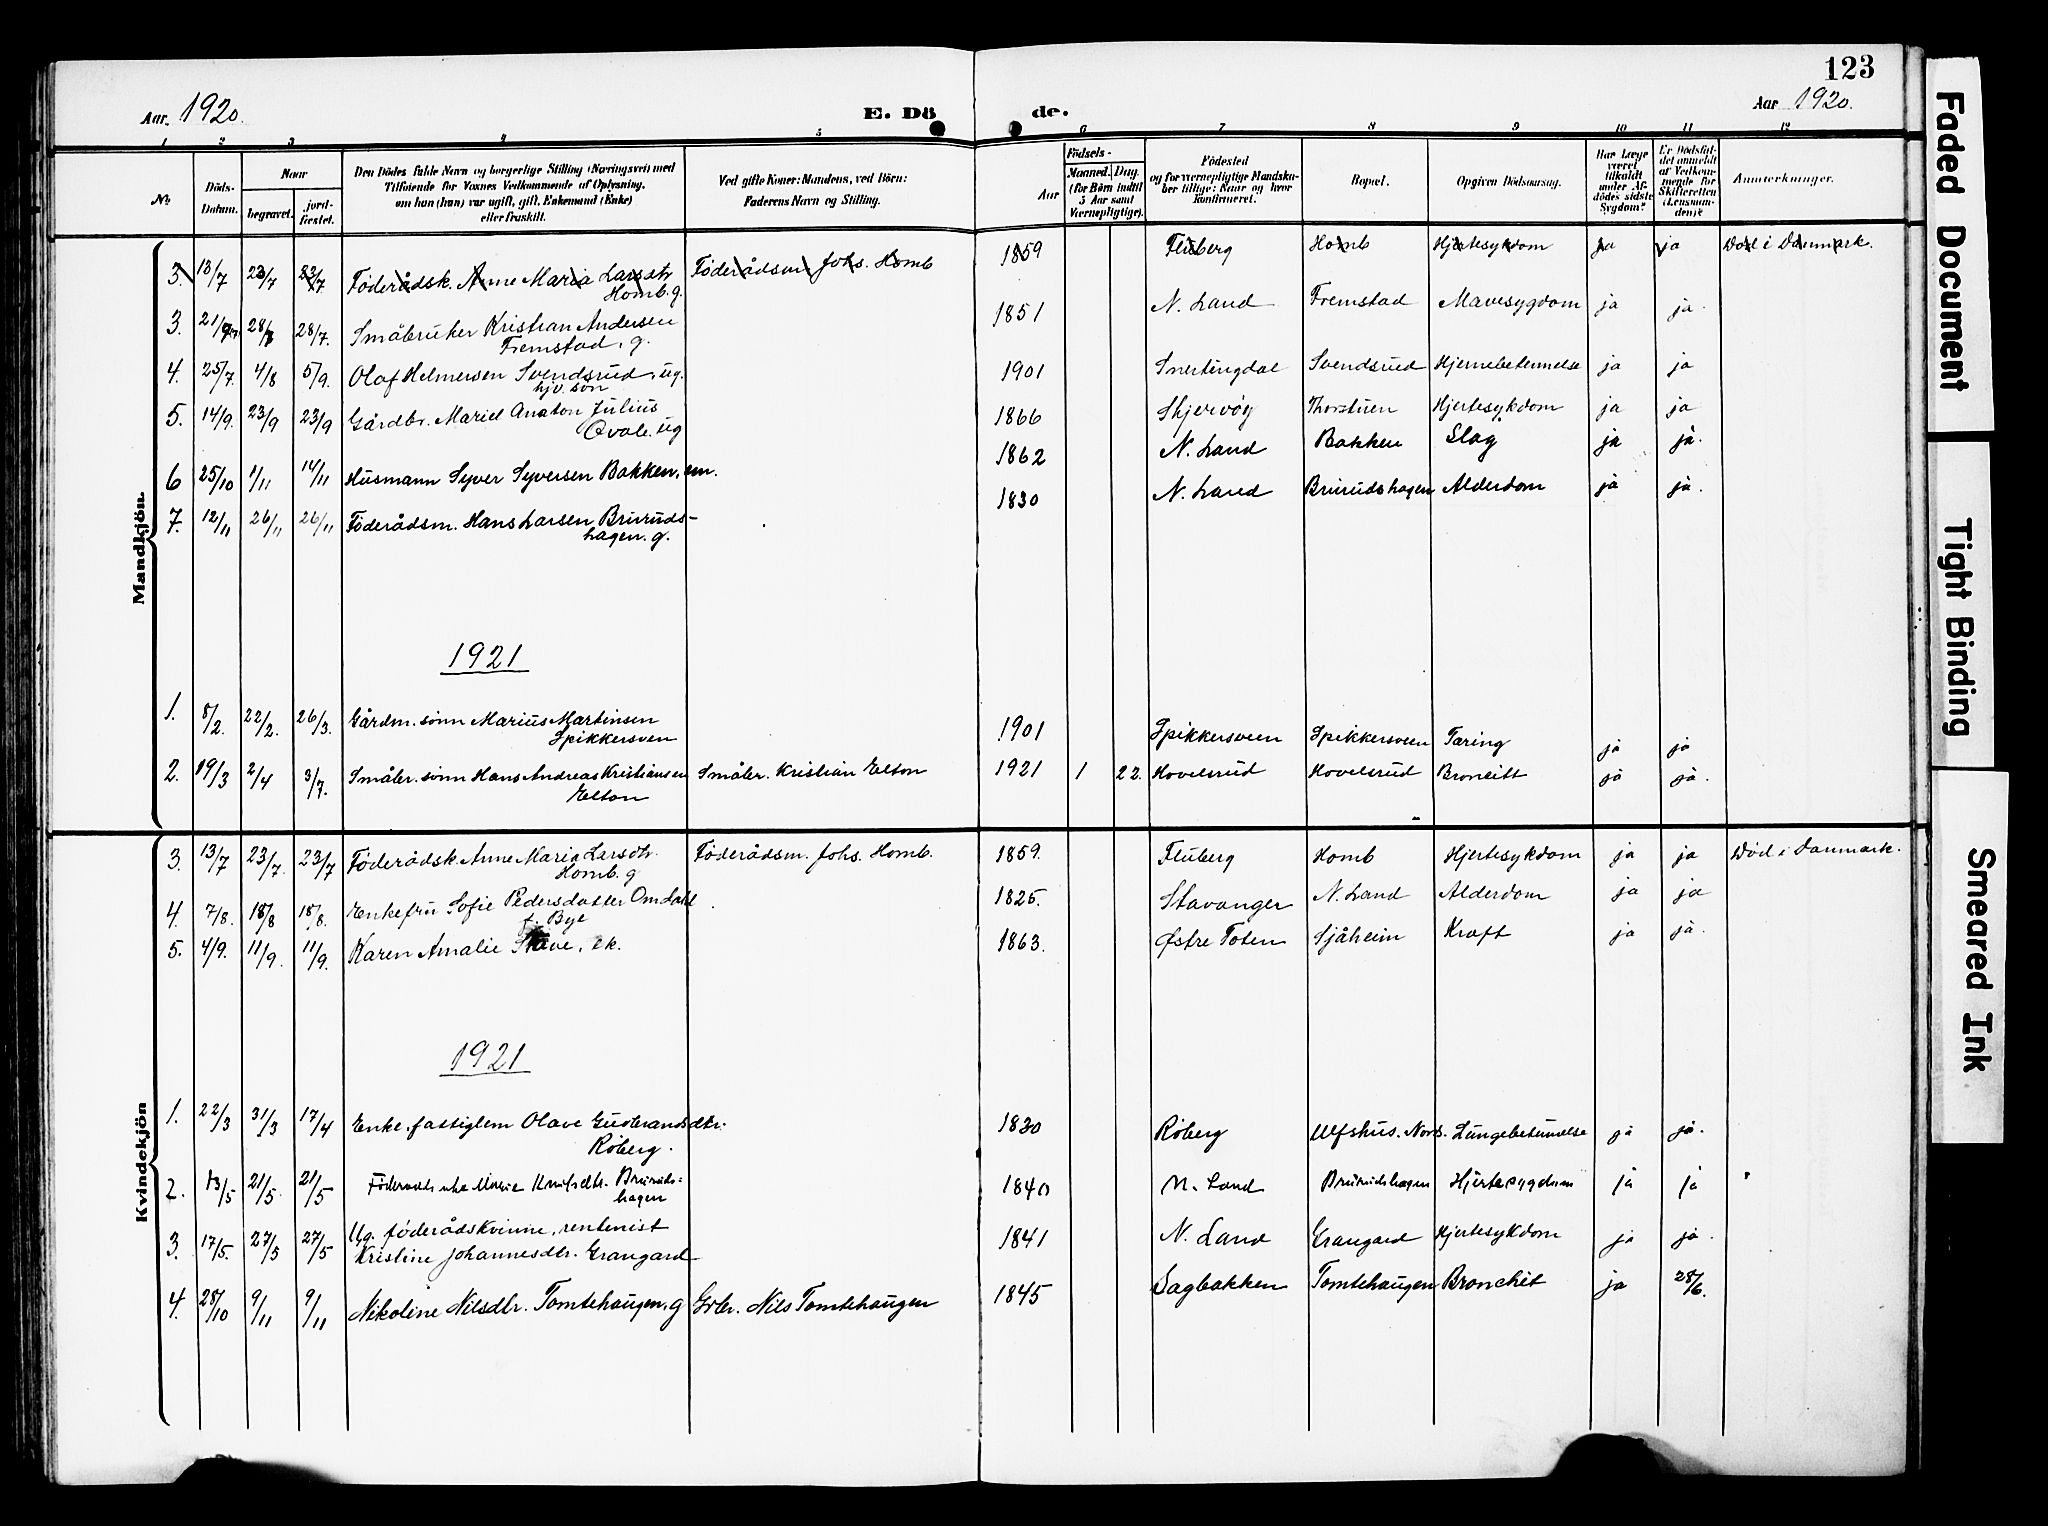 123
Aar. 1920. E. Dö de. Aar 1920.
1 2 3 4 5 6 7 8 9 10 11 12
No.
Döds-Datum.
Naar
begravet.
jord-fæstet.
Den Dödes fulde Navn og borgerlige Stilling (Næringsvei) med
Tilföiende for Voxnes Vedkommende af Oplysning,
om han (hun) var ugift, gift, Enkemand (Enke)
eller fraskilt.
Ved gifte Koner: Mandens, ved Börn:
Faderens Navn og Stilling.
Födsels-
Aar
Maaned. Dag.
(for Börn indtil
5 Aar samt
Værnepligtige).
Födested
og for værnepligtige Mandska-
ber tillige: Naar og hvor
konfirmeret.
Bopæl.
Opgiven Dödsaarsag.
Har Læge
været
tilkaldt
under Af-
dödes sidste
Sygdom?
Er Dödsfal-
det anmeldt
af Vedkom-
mende for
Skifteretten
(Lensman-
den)?
Anmærkninger.
Mandkjön.
3. 13/7 23/7 23/7 Föderådsk. Anne Maria Larsdtr. Föderådsm. Johs. Homb 1859 Fluberg Homb Hjertesykdom ja ja Död i Danmark.
Homb. g.
3. 21/7 28/7 28/7. Småbruker Kristian Andersen 1851 N. Land Fremstad Mavesygdom ja ja.
Fremstad, g.
4. 25/7. 4/8 5/9. Olaf Helmersen Svendsrud, ug. 1901 Snertingdal Svendsrud Hjernebetennelse ja ja
hjv. sön
5. 14/9. 23/9 23/9 Gårdbr. Mariel Anaton Julius 1866 Skjervöy Thorstuen Hjertesykdom ja ja
Qvale. ug
6 25/10 1/11 14/11 Husmann Syver Syversen Bakken, em. 1862 N. Land Bakken Slag ja ja.
7. 12/11 26/11 26/11 Föderådsm. Hans Larsen Bruruds- 1830 N. Land Brurudshagen Alderdom ja ja.
hagen. g.
1921
1. 8/2. 22/2. 26/3. Gårdm. sönn Marius Martinsen 1901 Spikkersveen Spikkersveen Tæring ja ja
Spikkersven
2. 19/3 2/4 3/7. Småbr. sönn Hans Andreas Kristiansen Småbr. Kristian Elton 1921 1 22. Hovelsrud Hovelsrud Bronkitt ja ja.
Elton
Kvindekjön
3. 13/7 23/7. 23/7 Föderådsk. Anne Maria Larsdtr. Föderådsm. Johs. Homb. 1859. Fluberg Homb Hjertesykdom ja ja Död i Danmark.
Homb. g
4. 7/8. 18/8 18/8. Enkefru Sofie Pedersdatter Omdahl 1825. Stavanger N. Land Alderdom ja ja
f. Bye
5. 4/9. 11/9. 11/9. Karen Amalie Stave, ek. 1863. Østre Toten Sjåheim Kræft ja ja.
1921
1. 22/3 31/3 17/4 Enke, fattiglem Olave Gudbrandsdtr. 1830 Röberg Ulfshus. Nords. Lungebetennelse ja ja.
Röberg.
2. 13/5 21/5. 21/5 Föderåds enke Marie Knutsdtr. Bruruds- 1840 N. Land Brurudshagen Hjertesygdom ja ja
hagen
3. 17/5. 27/5 27/5 Ug. föderådskvinne, rentenist 1841 N. Land Grangard Hjertesykdom ja ja.
Kristine Johannesdtr. Grangard
4. 28/10 9/11 9/11 Nikoline Nilsdtr. Tomtehaugen, g Grbr. Nils Tomtehaugen 1845 Sagbakken Tomtehaugen Bronchit ja 28/6.
Faded Document
Tight Binding
Smeared Ink